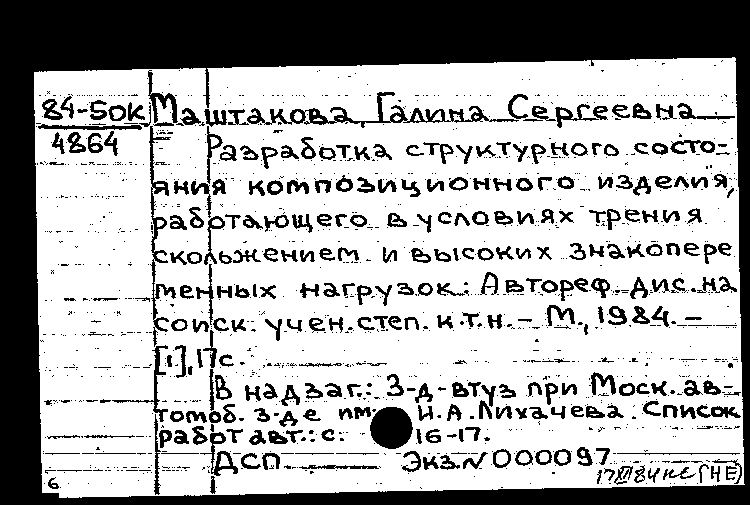 84-5ОК Маштакова, Галина Сергеевна
4864 Разработка структурного состо-
яния композиционного изделия,
работающего в условиях трения
скольжением и высоких знакопере
менных нагрузок: Автореф. дис. на
соиск. учен. степ. к.т.н. – М., 1984. –
[1], 17 с.
В надзаг.: З-д-втуз при Моск. ав-
томоб. з-де им. И.А. Лихачева. Список
работ авт.: с. 16-17.
ДСП Экз. № 000097
6 17 XII 84 (НЕ)